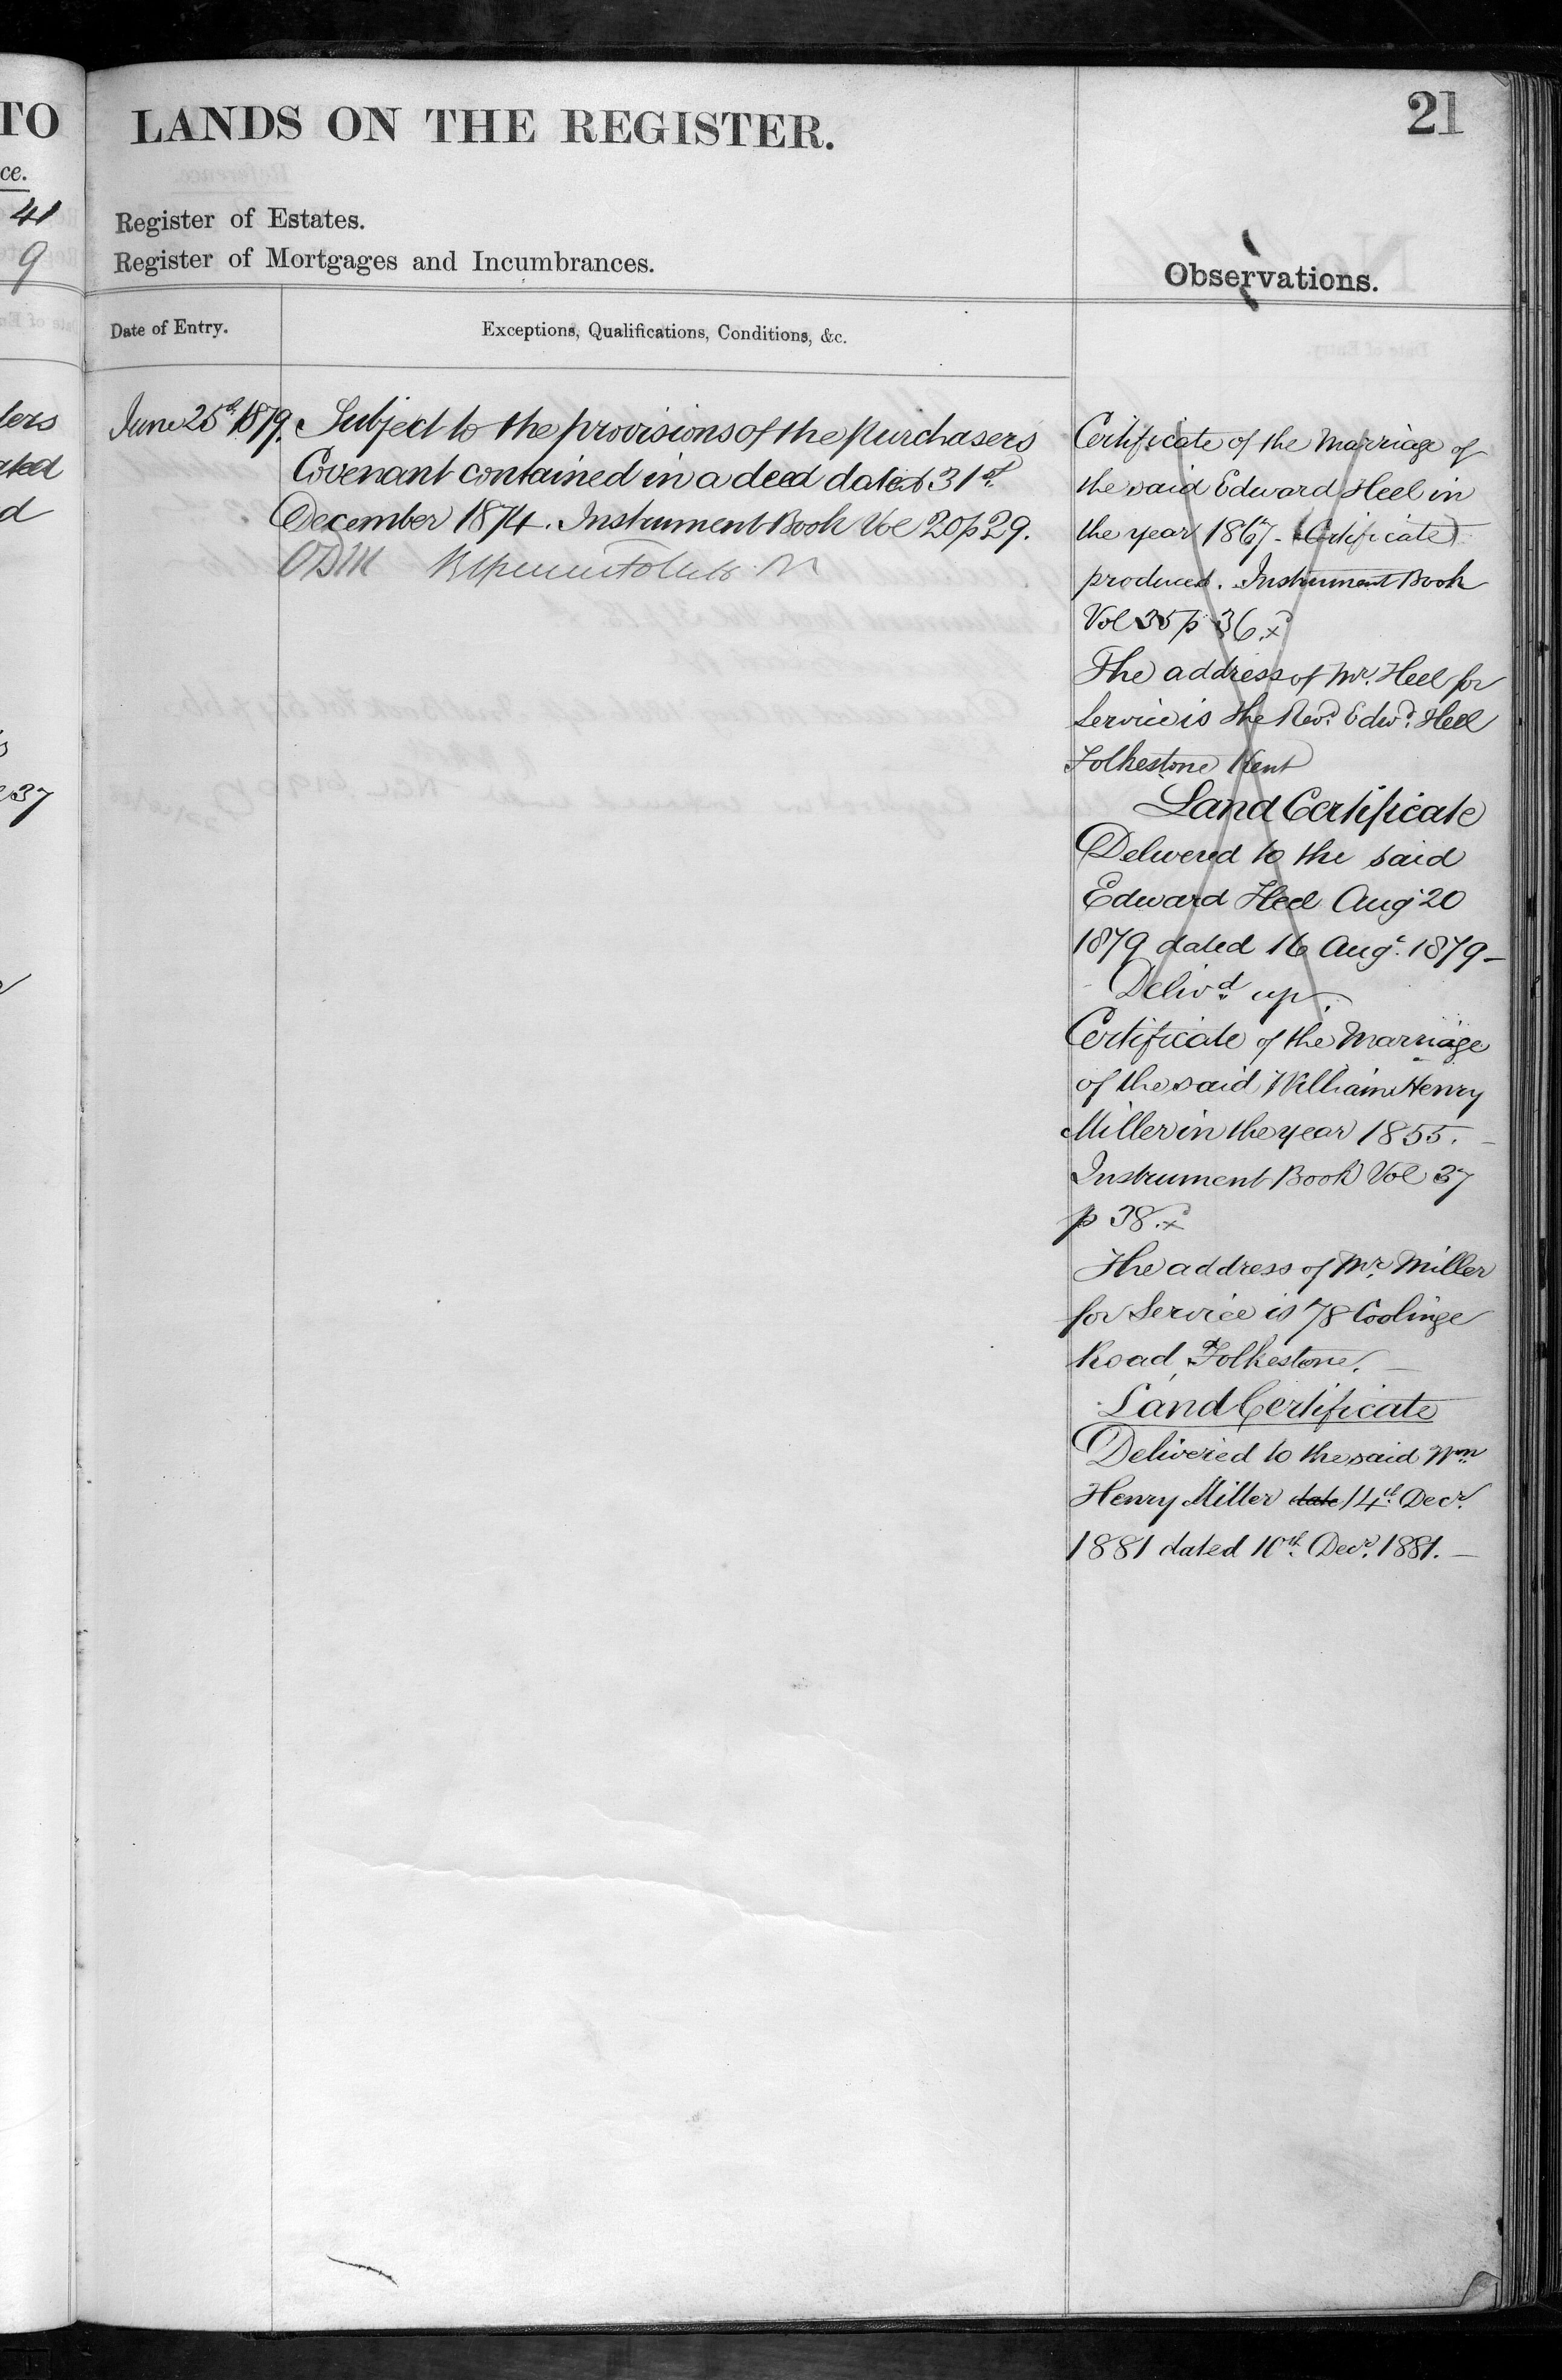 TO
ce.
41
9
lers
ated
d
37
LANDS ON THE REGISTER.
21
Register of Estates.
Register of Mortgages and Incumbrances.
Observations.
Date of Entry.
Exceptions, Qualifications, Conditions, &c.
June 25th 1879.
Subject to the provisions of the purchasers
Covenant contained in a deed dated 31st
December 1874. Instrument Book Vol 20 p 29.
Certificate of the Marriage of
the said Edward Heel in
the year 1867 - Certificate
produced. Instrument Book
Vol 35 p 36.
The address of Mr. Heel for
Service is The Revd. Edwd. Heel
Folkestone Kent
Land Certificate
Delivered to the said
Edward Heel Aug 20
1879 dated 16 Aug. 1879 -
Delivd up.
Certificate of the Marriage
of the said William Henry
Miller in the year 1855. -
Instrument Book Vol 37
p 38.
The address of Mr. Miller
for Service is 78 Coolinge
Road, Folkestone. -
Land Certificate
Delivered to the said Wm.
Henry Miller date 14th Decr.
1881 dated 10th Decr. 1881. -